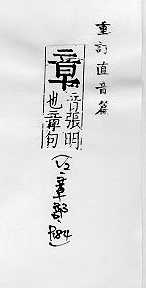 重訂直音篇
章
音張明
也章句
章部
84